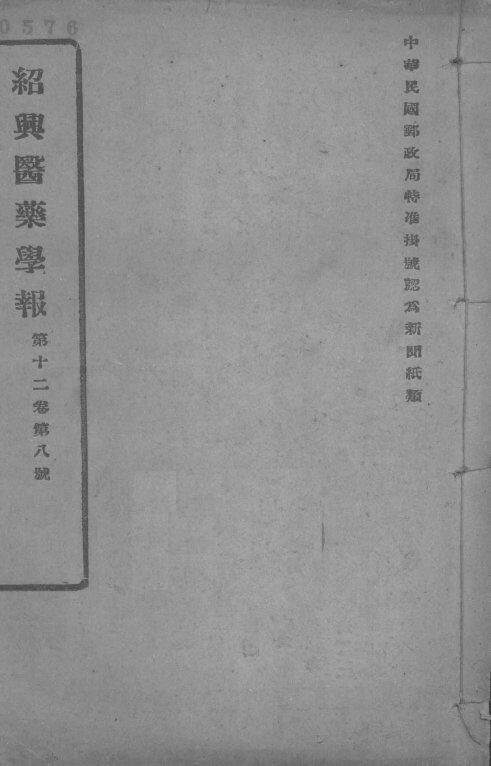 0576
中華民國郵政局特准掛號認為新聞紙類
紹興醫藥學報
第十二卷第八號